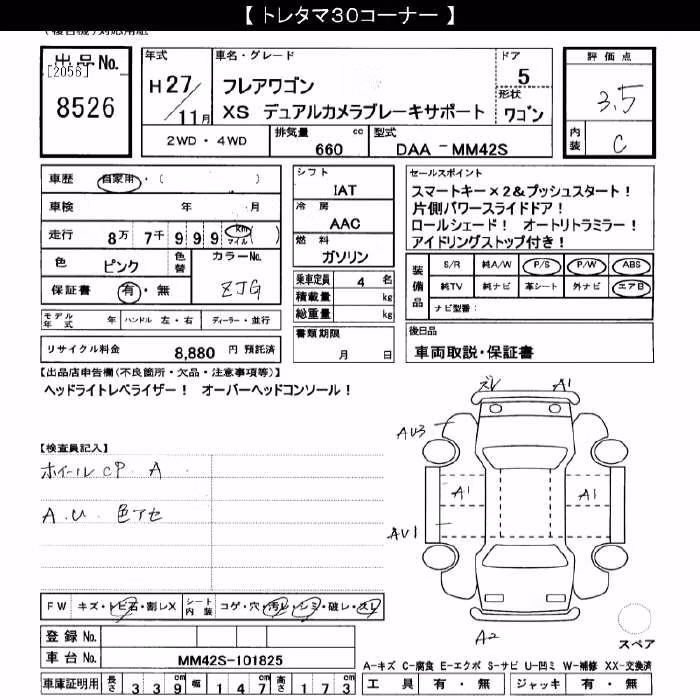 【 トレタマ30コーナー 】
出品No.
[2056]
8526
年式
H27/11月
車名・グレード
フレアワゴン
XS デュアルカメラブレーキサポート
ドア
5
形状
ワゴン
評価点
3.5
内装
C
2WD・4WD
排気量
660
cc
型式
DAA -MM42S
車歴
自家用・( )
車検 年 月
走行 8万 7千 9 9 9 km マイル ( )
色 ピンク
色替
カラーNo.
ZJG
保証書 有・無
シフト
IAT
冷房
AAC
燃料
ガソリン
乗車定員 4 名
積載量 kg
総重量 kg
書類期限
月 日
セールスポイント
スマートキー×2&プッシュスタート!
片側パワースライドドア!
ロールシェード! オートリトラミラー!
アイドリングストップ付き!
装備品
S/R 純A/W P/S P/W ABS
純TV 純ナビ 革シート 外ナビ エアB
ナビ型番:
モデル年式 年 ハンドル 左・右 ディーラー・並行
リサイクル料金 8,880 円 預託済
後日品
車両取説・保証書
【出品店申告欄(不良箇所・欠品・注意事項等)】
ヘッドライトレベライザー! オーバーヘッドコンソール!
【検査員記入】
ホイールCP. A
A.U. 色アセ
ズレ A1
AU3
A1 A1
AU1
A2
スペア
FW キズ・トビ石・割レX
シート内装 コゲ・穴・汚レ・シミ・破レ・スレ
登録No.
車台No. MM42S-101825
車庫証明用 長さ 3 3 9 幅 1 4 7 高さ 1 7 3
A-キズ C-腐食 E-エクボ S-サビ U-凹ミ W-補修 XX-交換済
工具 有・無 ジャッキ 有・無